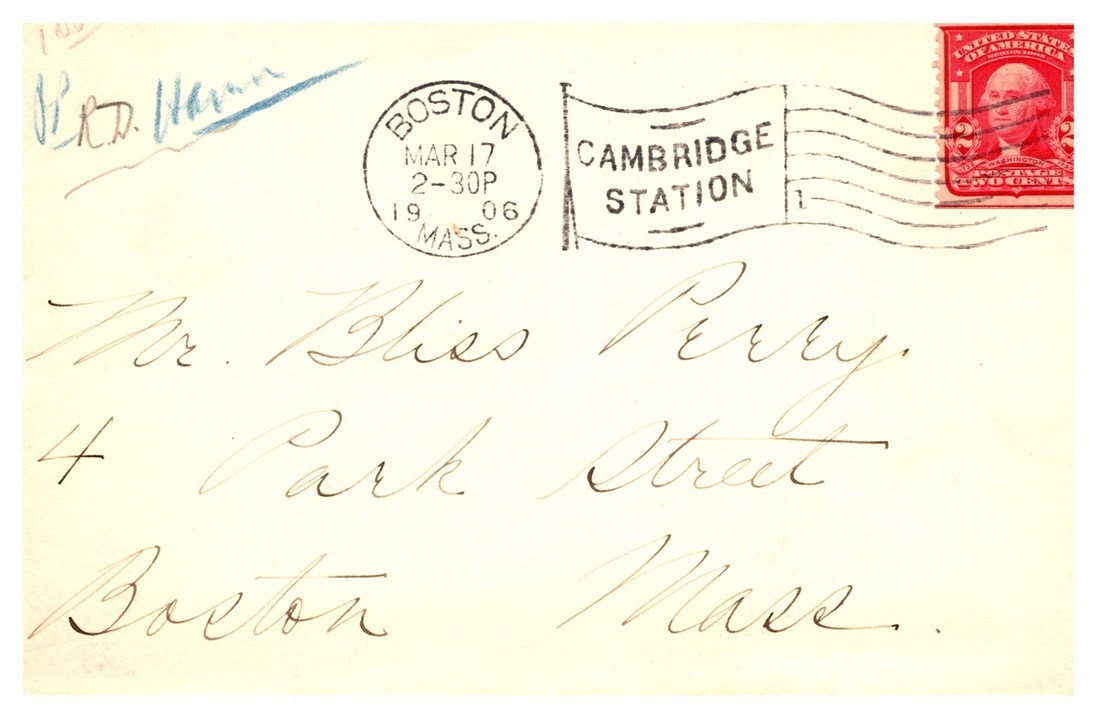 R.D.
BOSTON
MAR 17
2-30P
19 06
MASS.
CAMBRIDGE
STATION
1
UNITED STATES
OF AMERICA
2 2
WASHINGTON
POSTAGE
TWO CENTS
Mr. Bliss Perry.
4 Park Street
Boston Mass.